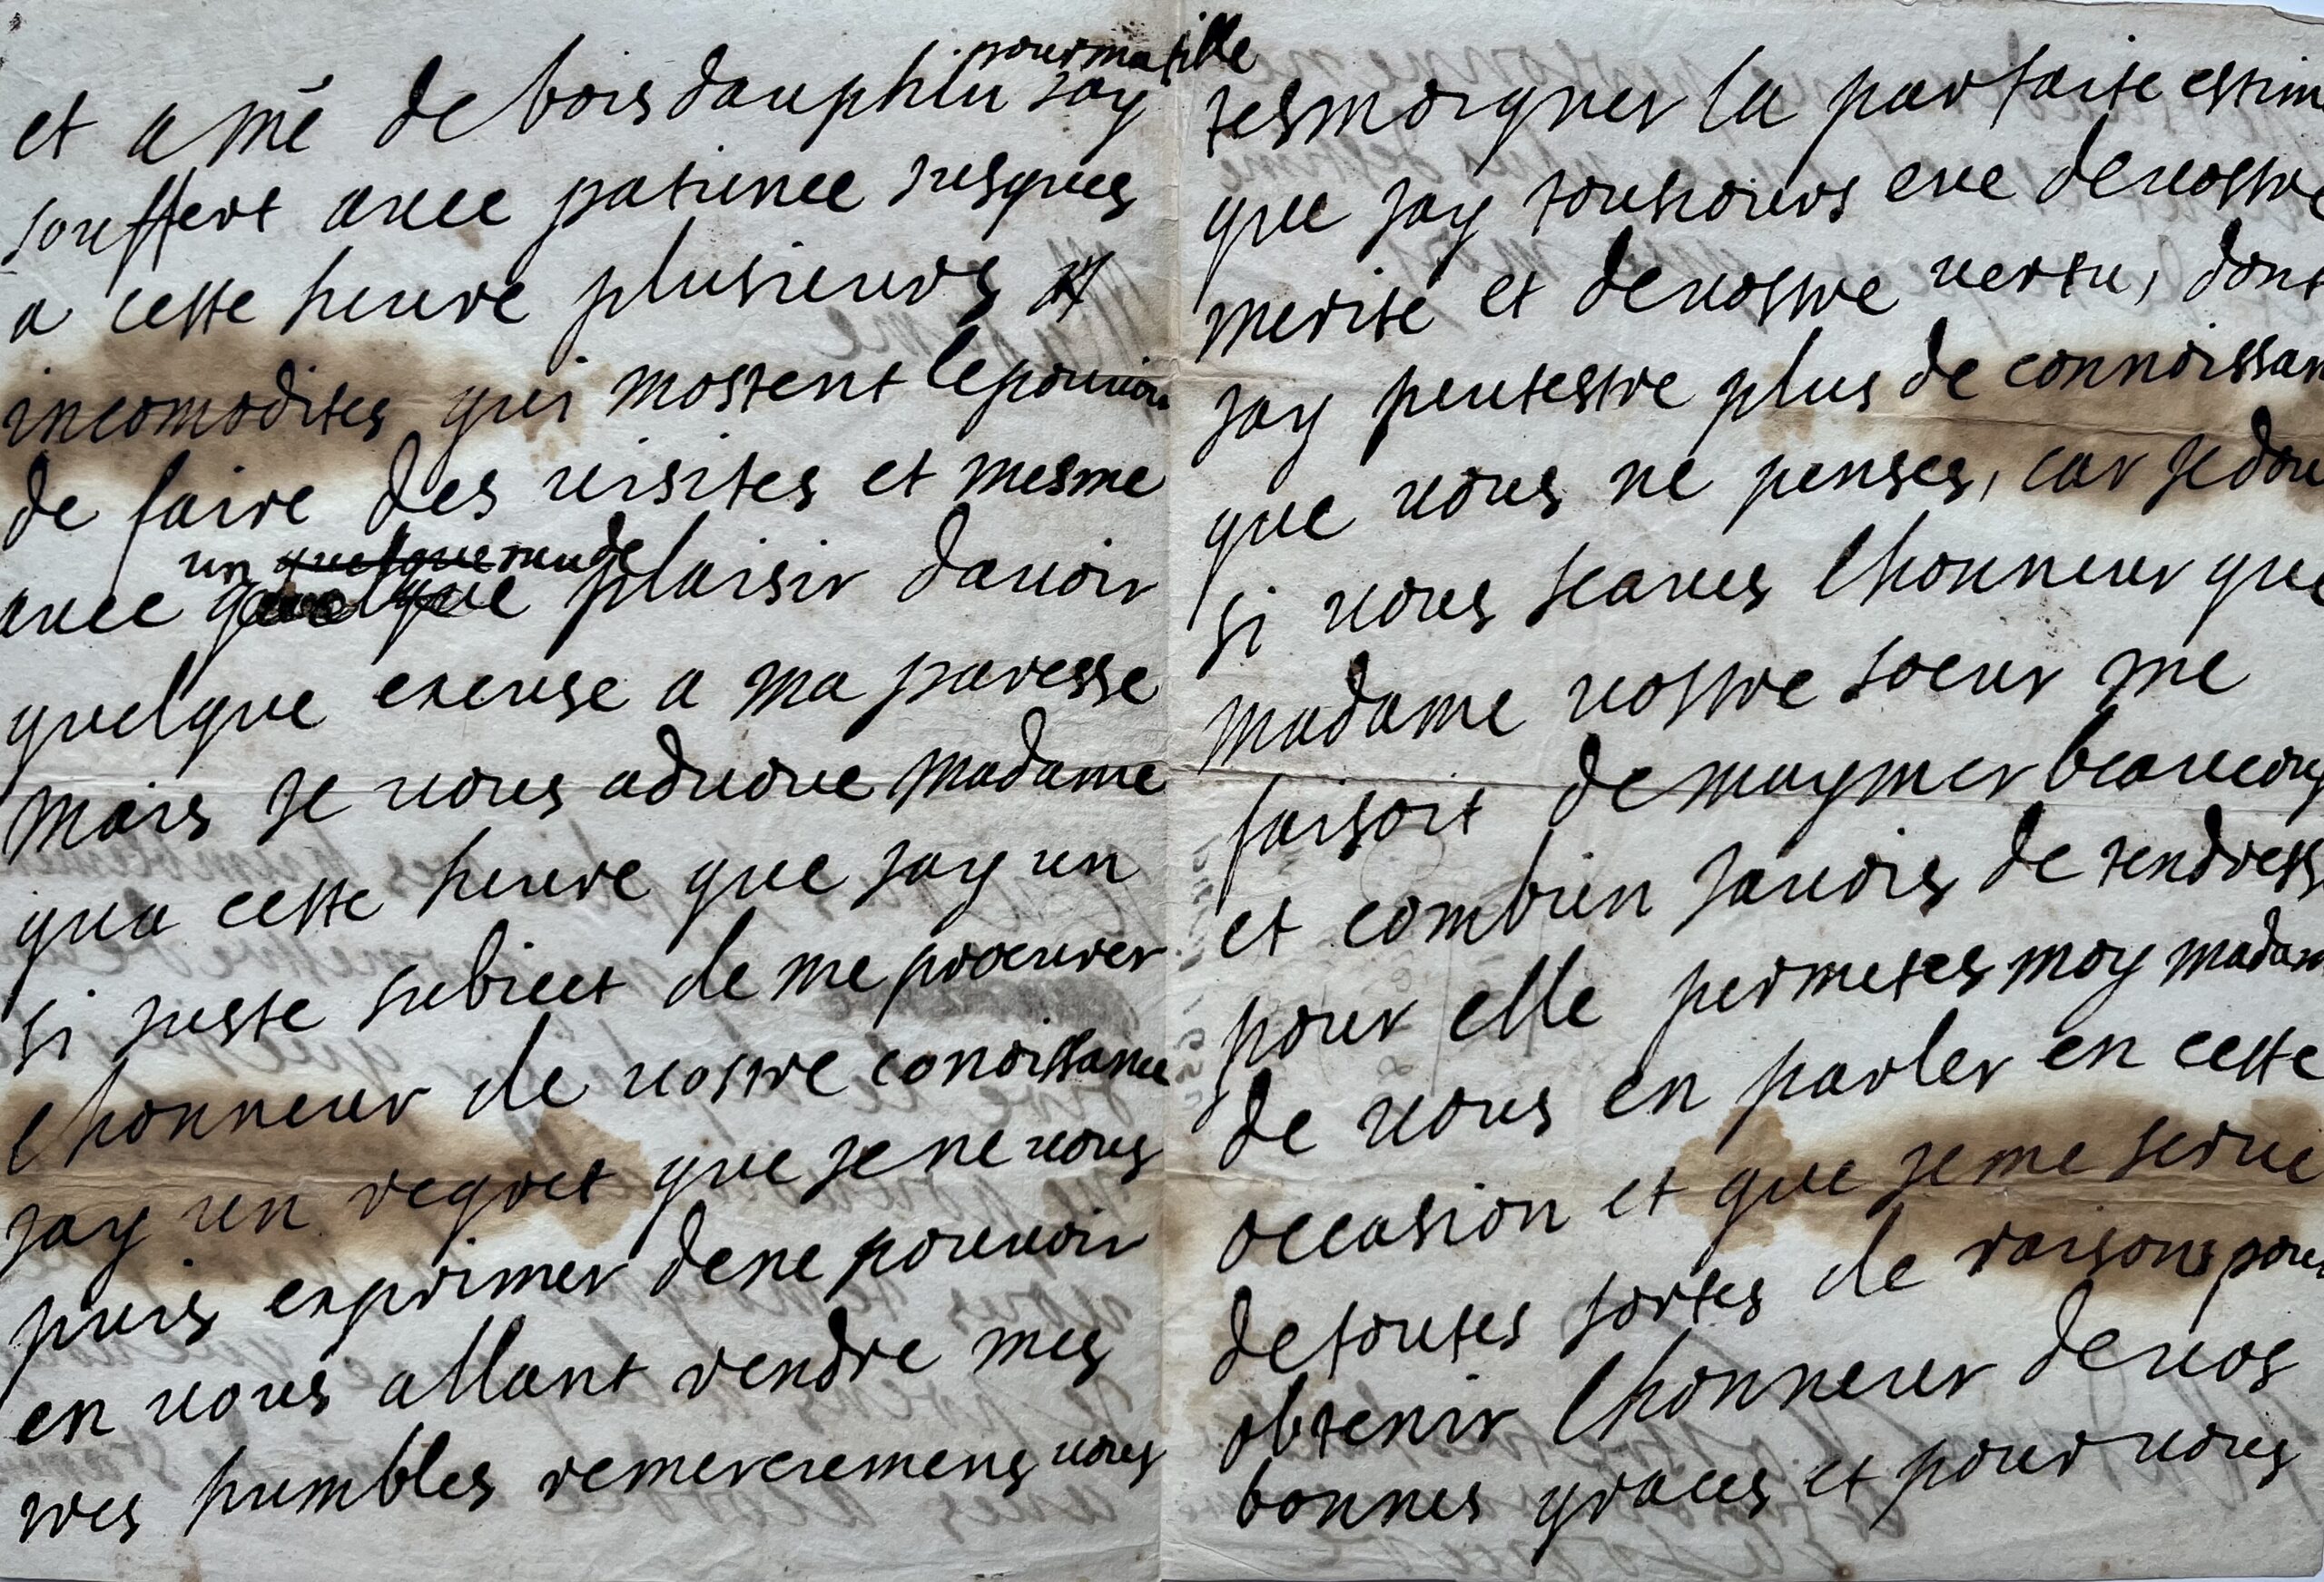 pour ma fille
et a mé de bois dauphin jay
souffert auec patience jusques
a cette heure plusieurs
incomodites qui mostent le pouuoir
de faire des uisites et mesme
un quelque rude
auec quelque plaisir dauoir
quelque excuse a ma paresse
mais je uous aduoue madame
qua cette heure que jay un
si juste subiect de me procurer
lhonneur de uostre conoissance
jay un regret que je ne uous
puis exprimer de ne pouuoir
en uous allant rendre mes
tres humbles remerciemens uous
tesmoigner la parfaite estim
que jay tousiours eue de uostre
merite et de uostre uertu, dont
jay peutestre plus de connoissan
que uous ne penses, car je dou
si uous scaues lhonneur que
madame uostre soeur me
faisoit de maymer beaucoup
et combien jauois de tendress
pour elle permetes moy madam
de uous en parler en cette
occasion et que je me serue
de toutes sortes de raisons pour
obtenir lhonneur de uos
bonnes graces et pour uous